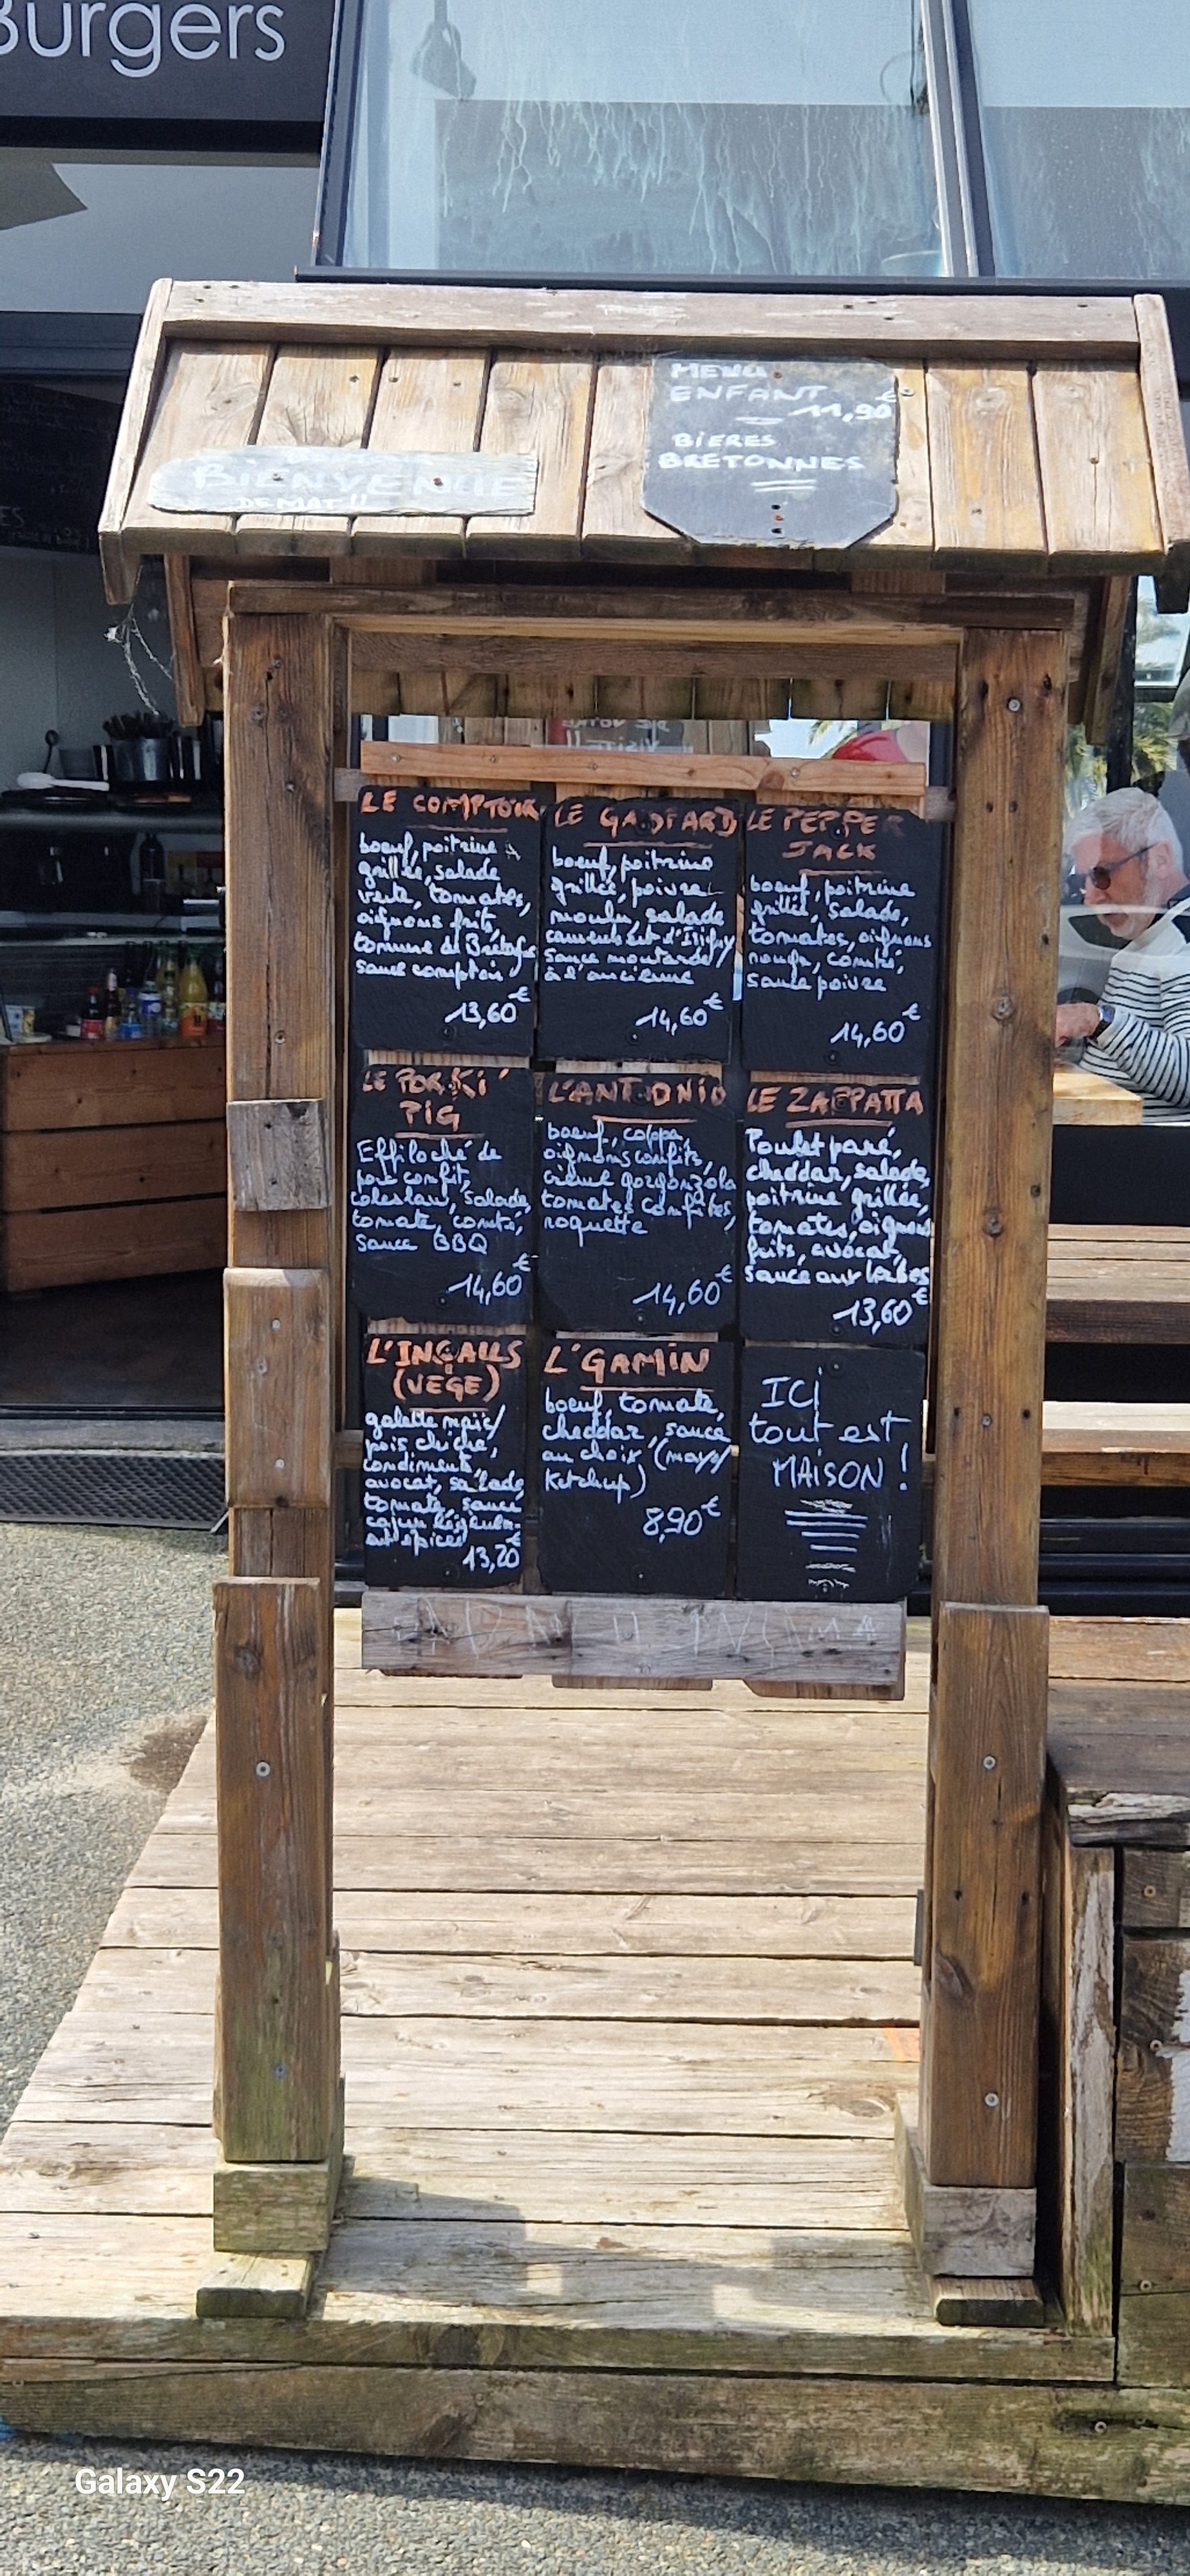 Burgers
MENU
ENFANT
11,90€
BIERES
BRETONNES
BIENVENUE
DEMAT!!
LE COMPTOIR
boeuf, poitrine
grillée, salade
verte, tomates,
oignons frits,
tomme de Bretagne
sauce comptoir
13,60€
LE GAILLARD
boeuf, poitrine
grillée, poivre
moulu, salade
camembert d'Isigny
sauce moutarde
à l'ancienne
14,60€
LE PEPPER
JACK
boeuf, poitrine
grillée, salade,
tomates, oignons
rouges, comté,
sauce poivre
14,60€
LE PORKI'
PIG
Effiloché de
porc confit,
coleslaw, salade,
tomate, comté,
sauce BBQ
14,60€
L'ANTONIO
boeuf, coppa
oignons confits,
crème gorgonzola
tomates confites,
roquette
14,60€
LE ZAPPATTA
Poulet pané,
cheddar, salade,
poitrine grillée,
tomates, oignons
frits, avocat,
sauce aux herbes
13,60€
L'INGALLS
(VEGE)
galette maïs/
pois chiche,
condiments,
avocat, salade,
tomate, sauce
cajun légèrem-
ent épicée
13,20€
L'GAMIN
boeuf, tomate,
cheddar, sauce
au choix, (mayo/
ketchup)
8,90€
ICI
tout est
MAISON !
Galaxy S22